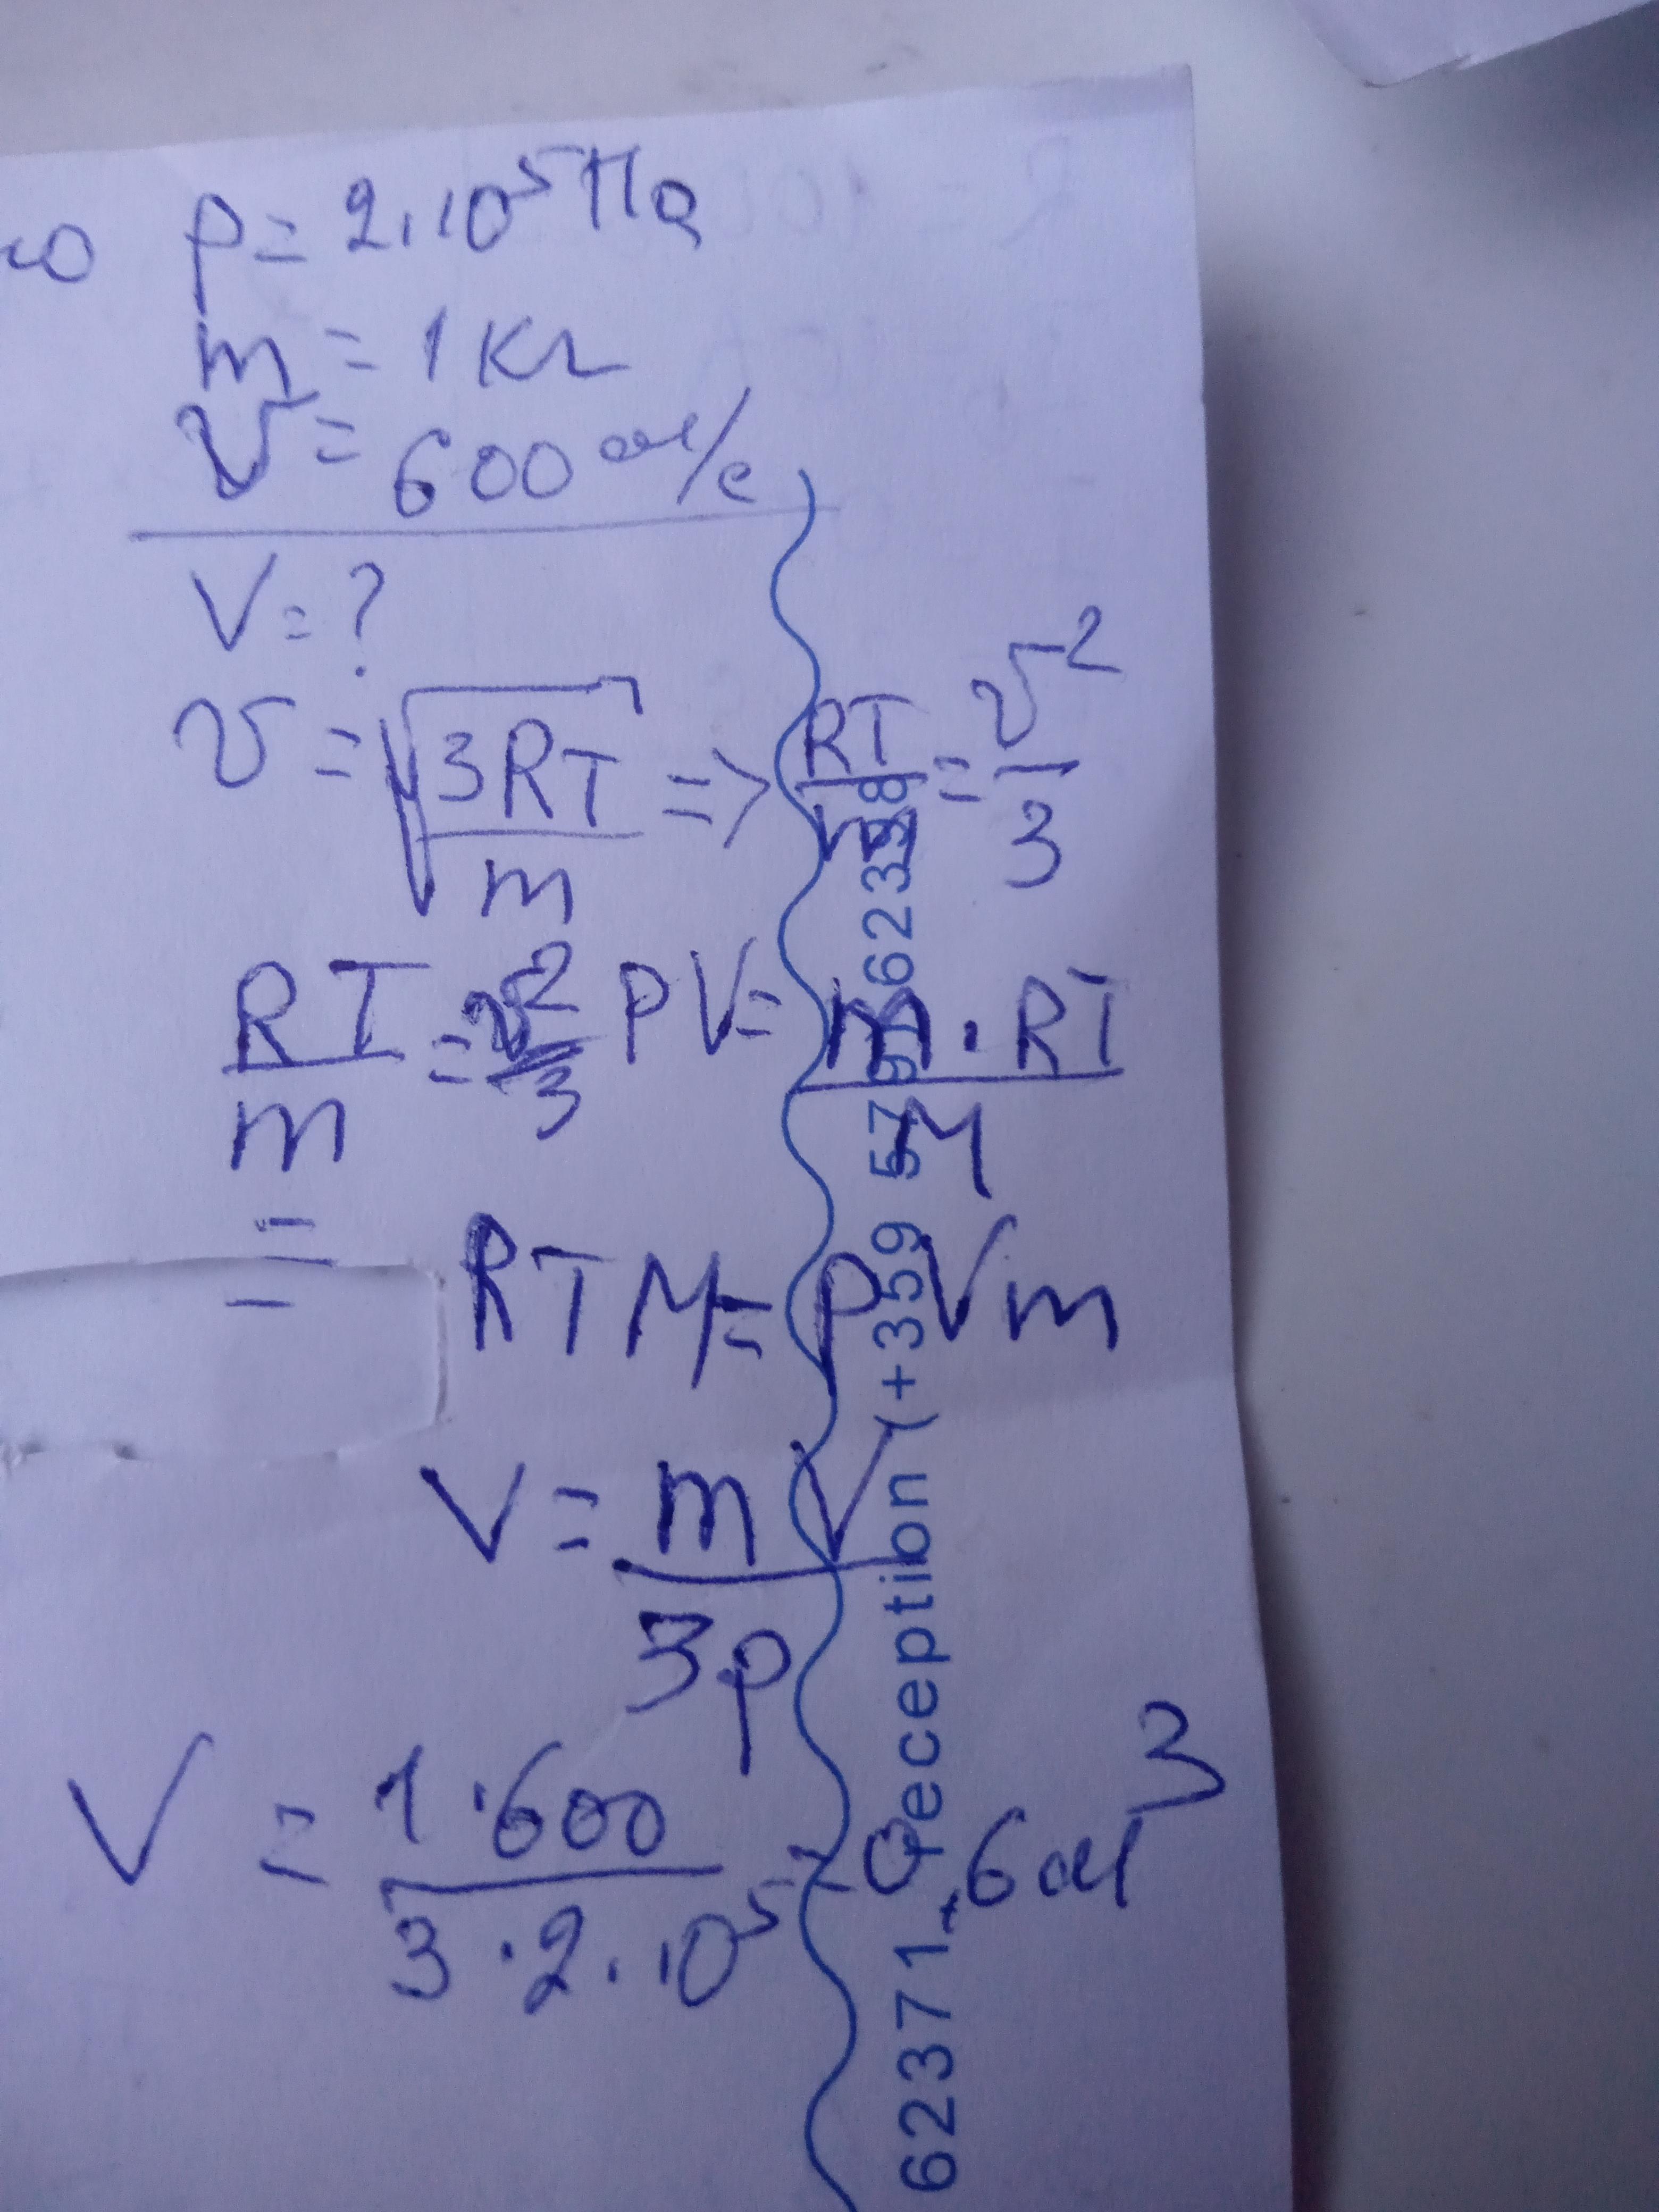 p = 2.10⁵ Па
m = 1 кг
v = 600 м/с
V = ?
v = √(3RT/m) => RT/m = v²/3
RT/m = v²/3 PV = m.RT/M
=
RTM = pVm
V = mV/3p
V = 1.600/3.2.10⁵ = 0,6 м³
62371, reception (+359 579 62338